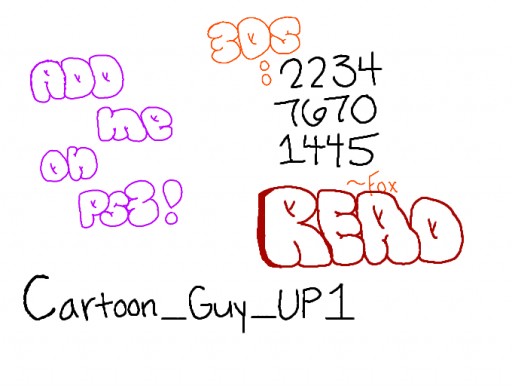 ADD
me
on
PS3!
3DS
:
2234
7670
1445
~Fox
READ
Cartoon_Guy_UP1